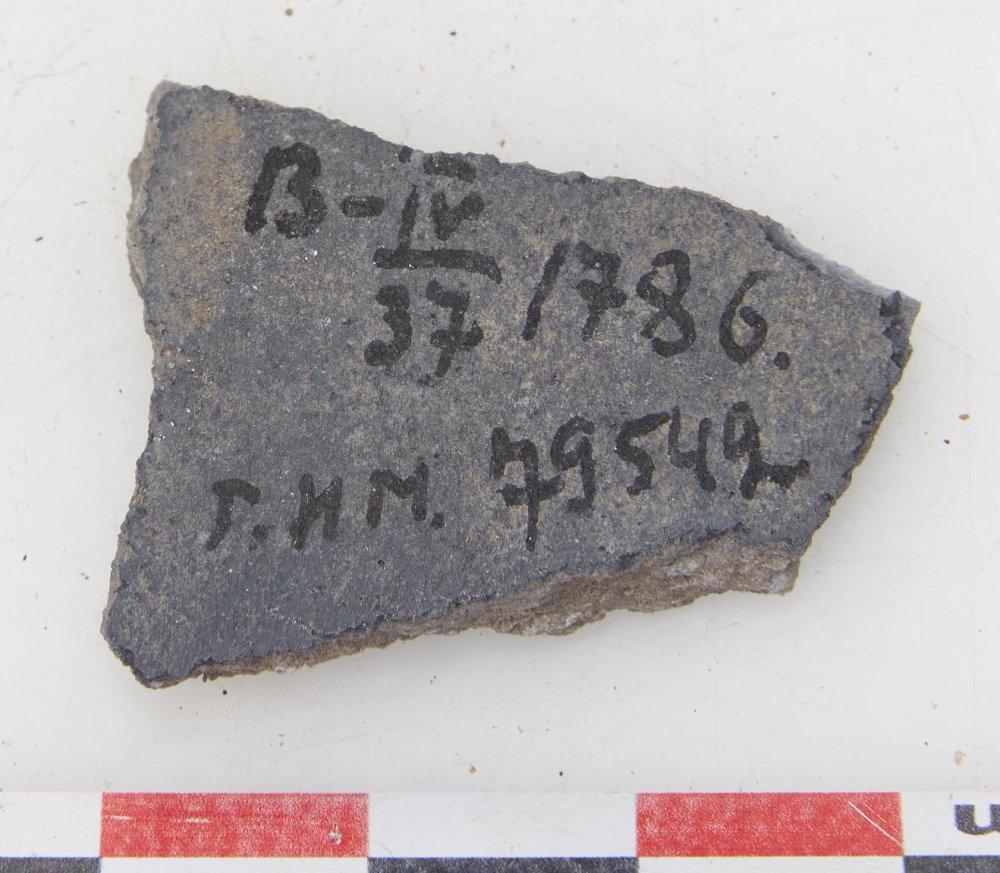 В-IV/37/1786.
Г.ИМ. 79549